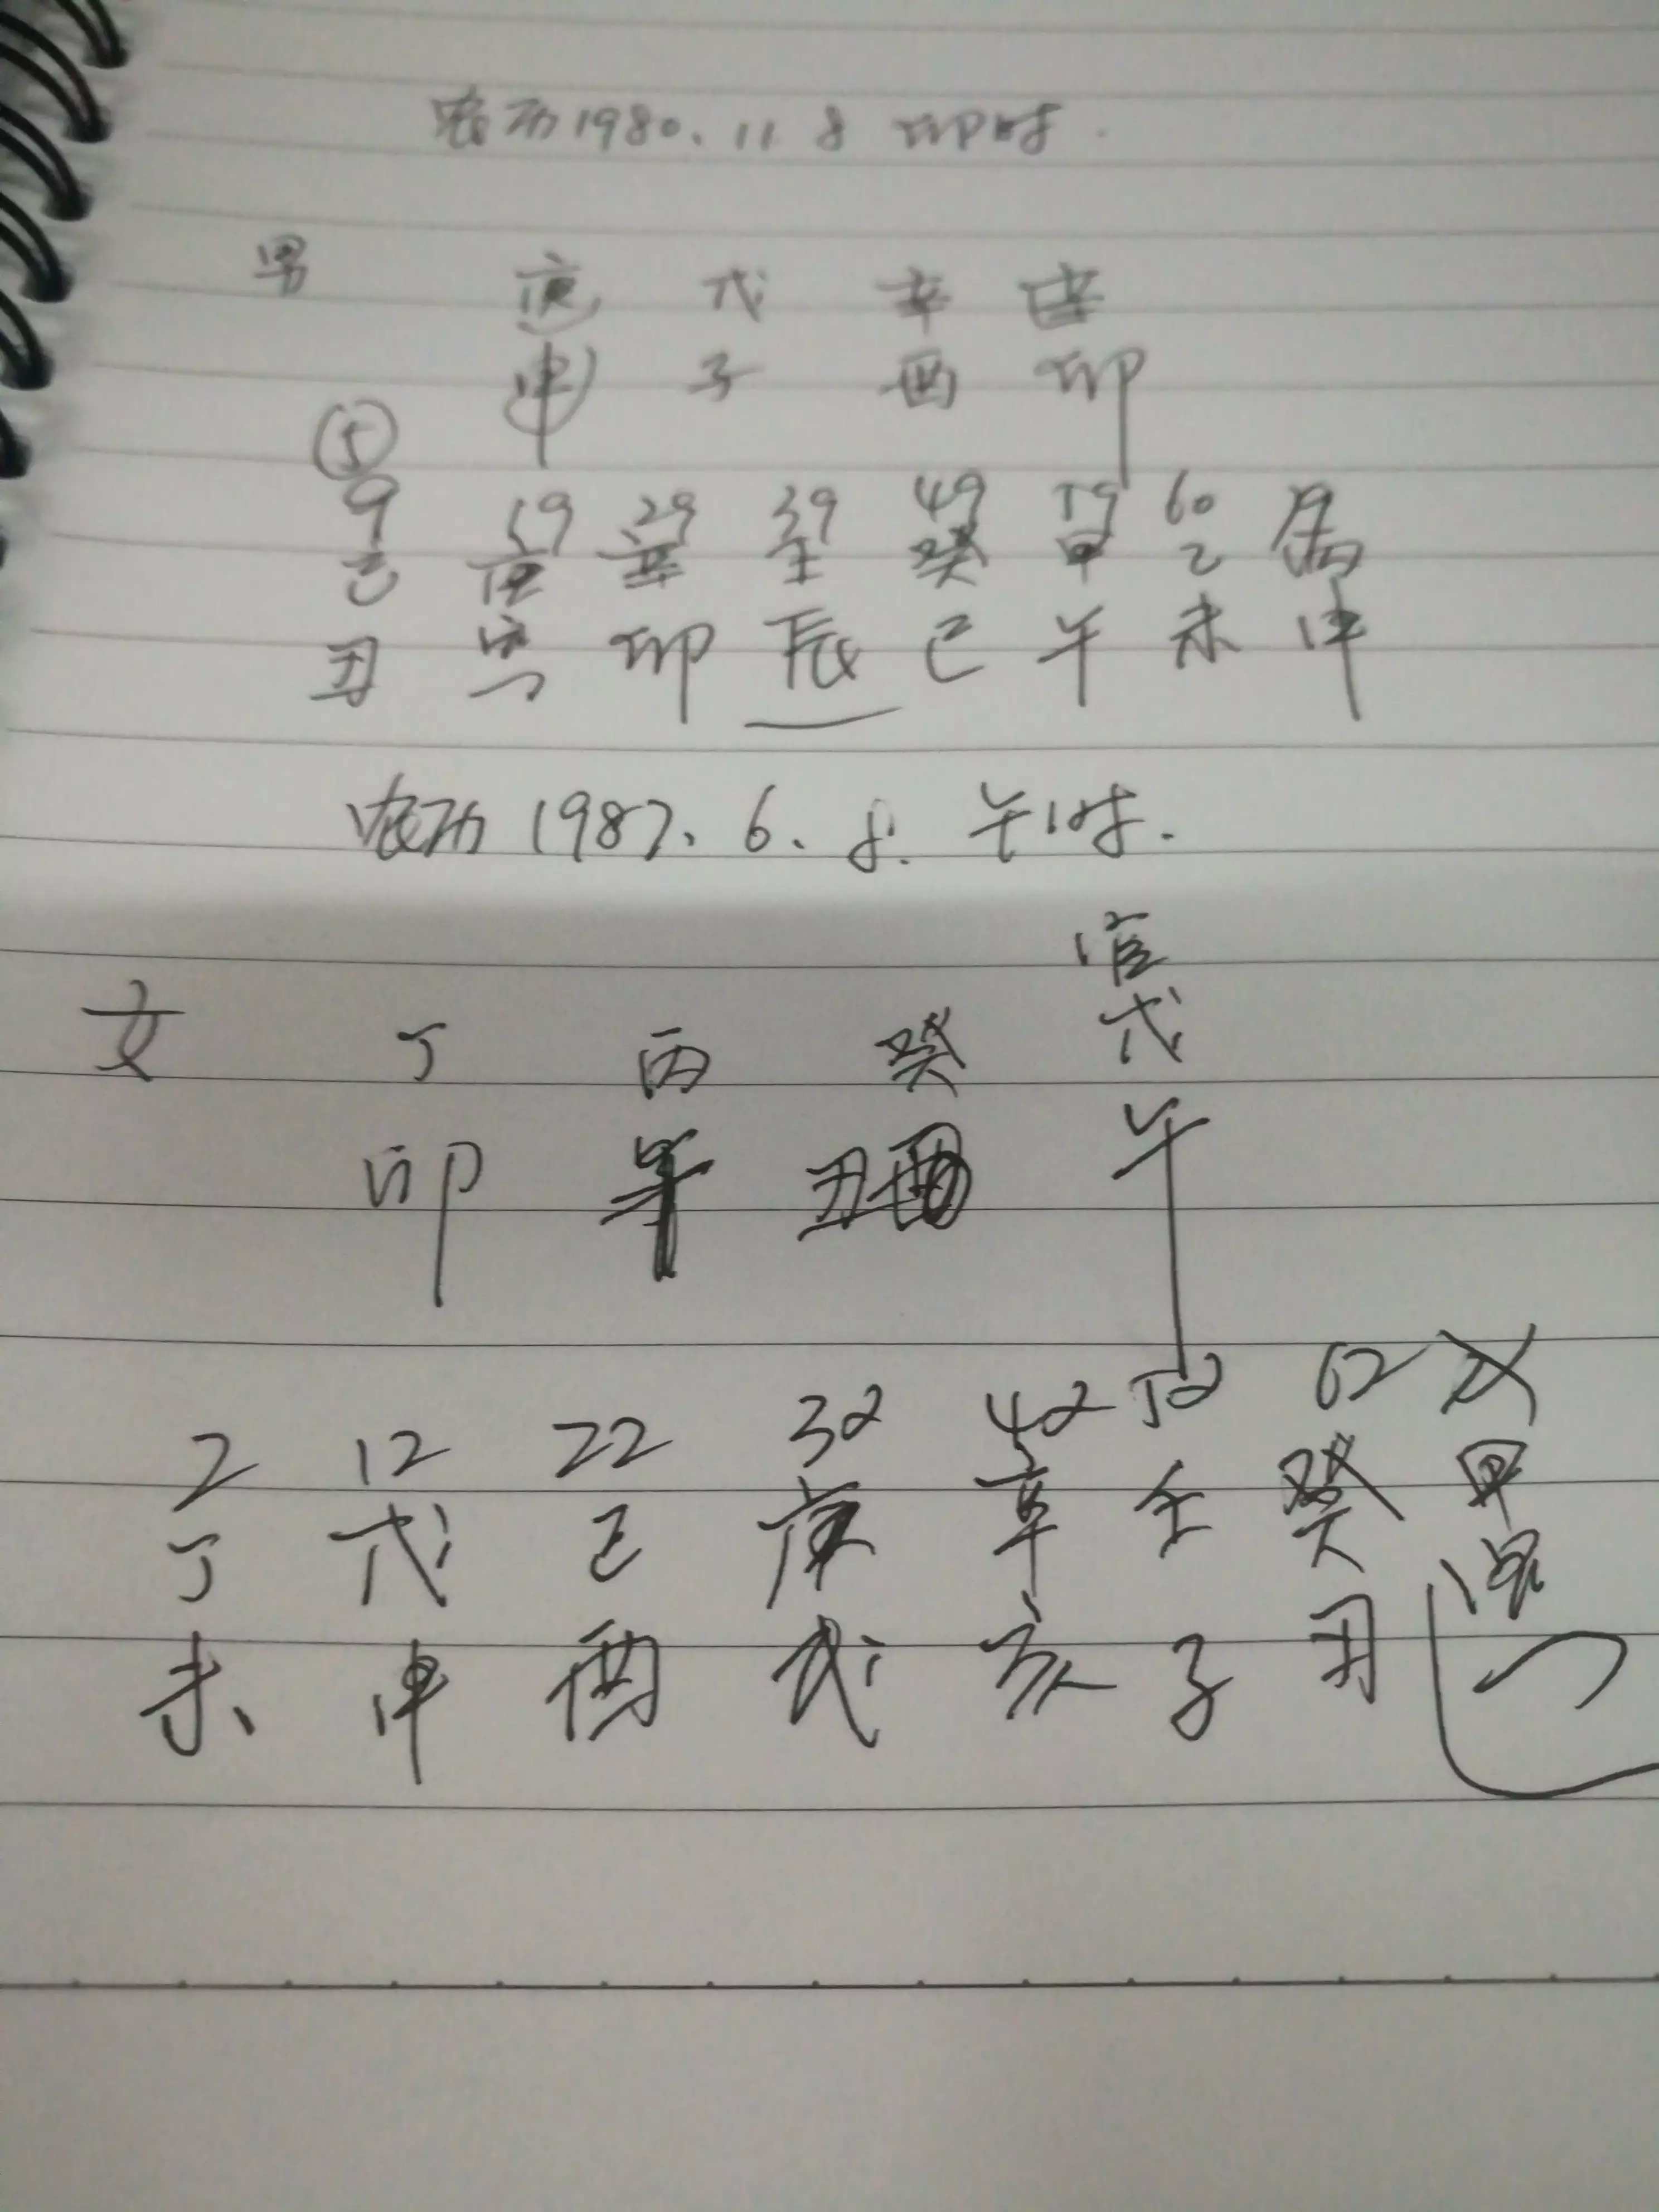 农历1980.11 8 卯时.
男 庚 戊 辛 辛
申 子 酉 卯
⑤
9 19 29 39 49 59 60
己 庚 辛 壬 癸 甲 乙 丙
丑 寅 卯 辰 巳 午 未 申
农历1987.6.8.午时.
官
女 丁 丙 癸 戊
卯 午 丑 午
2 12 22 32 42 52 62
丁 戊 己 庚 辛 壬 癸 甲
未 申 酉 戌 亥 子 丑